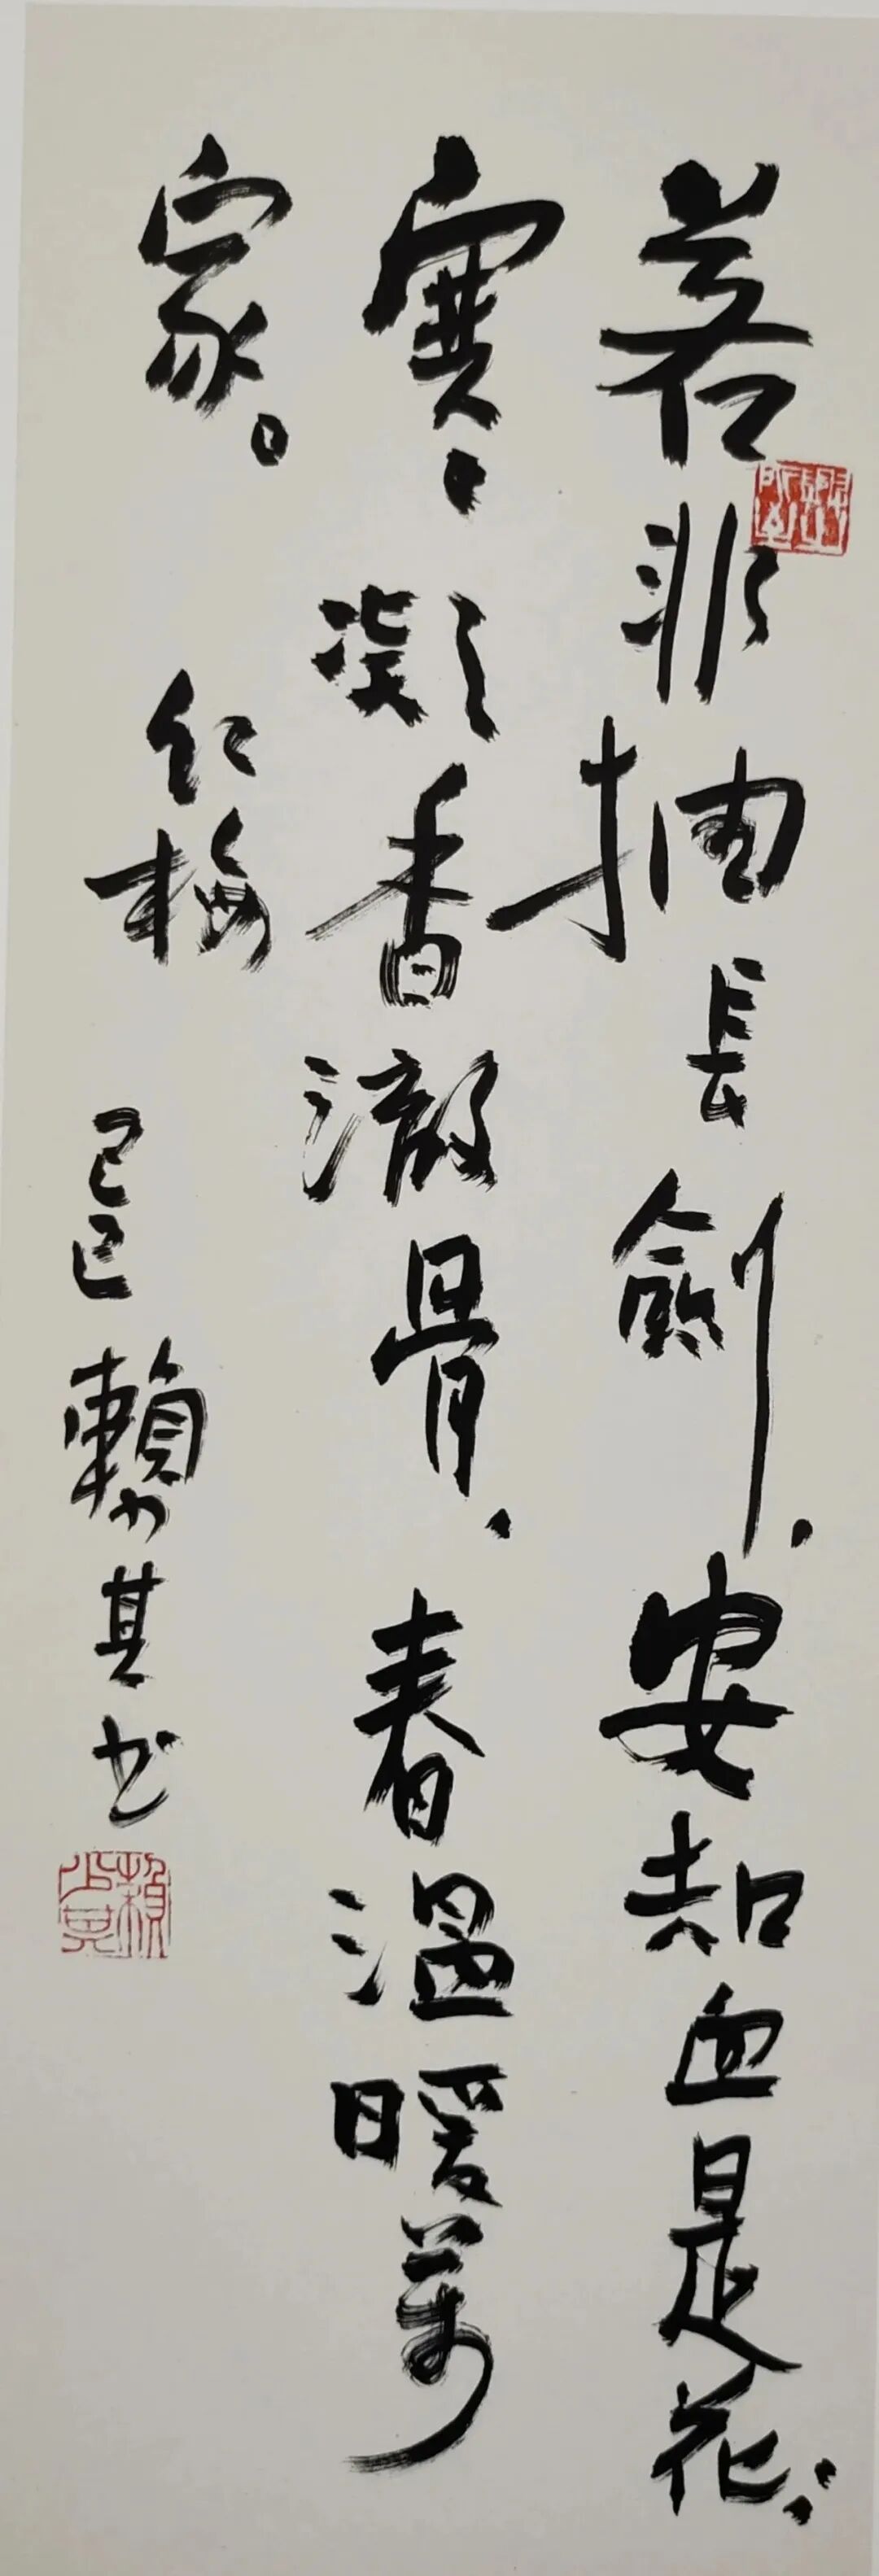 若非抽長劍.安知血是花：
寒、凝香澈骨.春溫暖萬
家。 紅梅 己巳 賴少其书
賴少其